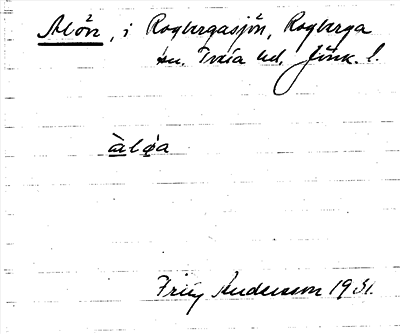 Alön, i Rogbergasjön, Rogberga
sn. Tveta hd. Jönk. l.
àløa
Fritz Anderson 1931.